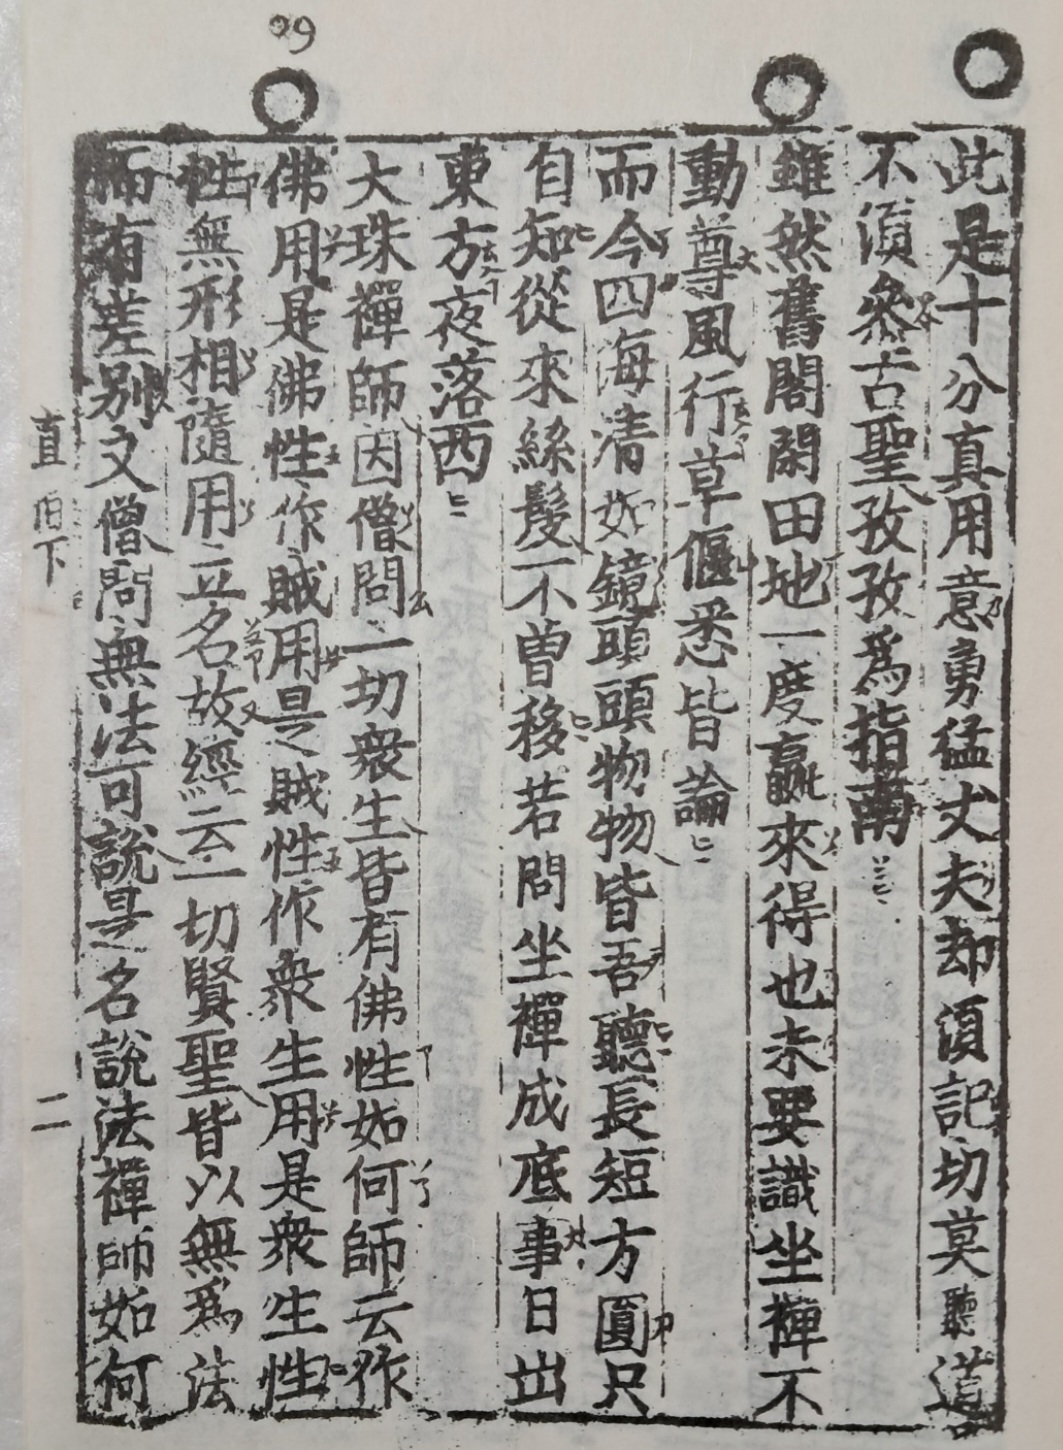 此是十分真用意勇猛丈夫却湏記切莫聽道
不湏叅古聖孜孜爲指南
雖然舊閣閑田地一度贏來得也未要識坐禪不
動尊風行草偃悉皆論
而今四海清如鏡頭頭物物皆吾聽長短方圓只
自知從來絲髮不曾移若問坐禪成底事日出
東方夜落西
大珠禪師因僧問一切衆生皆有佛性如何師云作
佛用是佛性作賊用是賊性作衆生用是衆生性
性無形相隨用立名故經云一切賢聖皆以無爲法
而有差別又僧問無法可說是名說法禪師如何
直旨下
二